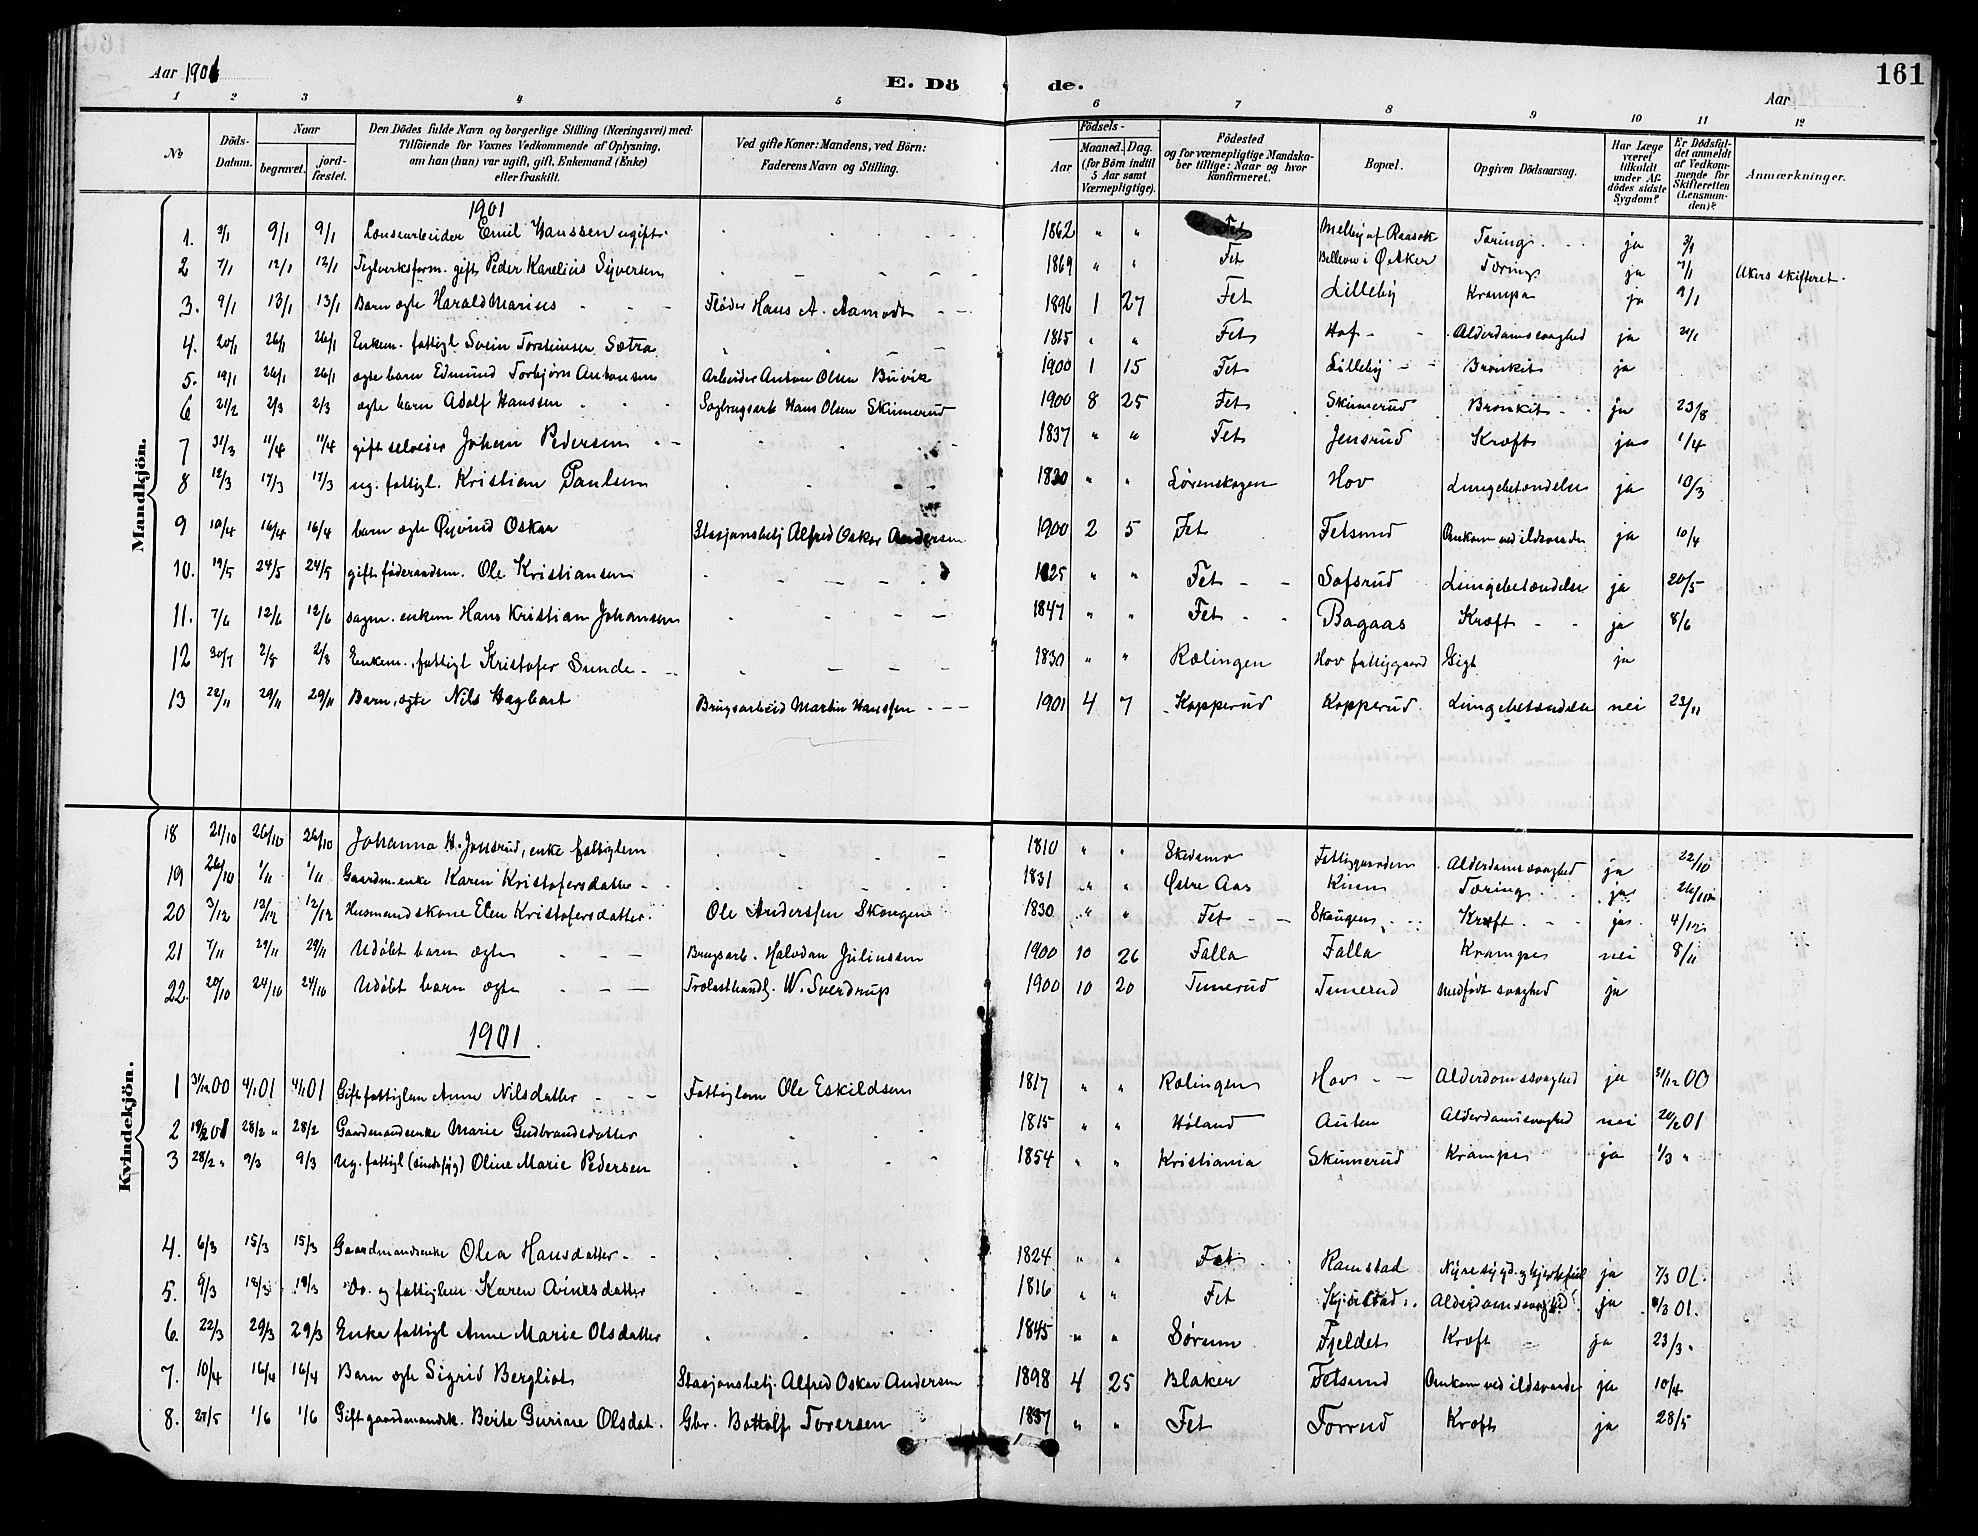 161
Aar 1901
E. Dö de.
Aar
1 2 3 4 5 6 7 8 9 10 11 12
No
Döds-Datum.
Naar
begravet.
jord-fæstet.
Den Dödes fulde Navn og borgerlige Stilling (Næringsvei) med-
Tilföiende for Voxnes Vedkommende af Oplysning,
om han (hun) var ugift, gift, Enkemand (Enke)
eller fraskilt.
Ved gifte Koner: Mandens, ved Börn:
Faderens Navn og Stilling.
Födsels-
Aar
Maaned. Dag.
(for Börn indtil
5 Aar samt
Værnepligtige).
Födested
og for værnepligtige Mandska-
ber tillige: Naar og hvor
konfirmeret.
Bopæl.
Opgiven Dödsaarsag.
Har Læge
været
tilkaldt
under Af-
dödes sidste
Sygdom?
Er Dödsfal-
det anmeldt
af Vedkom-
mende for
Skifteretten
(Lensman-
den)?
Anmærkninger.
Mandkjön.
1901
1. 3/1 9/1 9/1 Lænsearbeider Emil Hanssen ugift 1862 " " Fet Melby af Raasok Tæring ja 3/1
2 7/1 12/1 12/1 Teglverksform. gift Peder Karelius Syversen 1869 " " Fet Bellevue i Ø. Aker Tæring ja 7/1 Akers skifteret.
3. 9/1 13/1 13/1 Barn ægte Harald Marius Fløder Hans A. Aamodt 1896 1 27 Fet Lilleby Krampe ja 9/1
4. 20/1 26/1 26/1 Enkem. fattigl. Svein Torsteinsen Sætra 1815 " " Fet Hof Alderdomssvaghed ja 21/1
5. 19/1 26/1 26/1 ægte barn Edmund Torbjørn Antonsen Arbeider Anton Olsen Buvik 1900 1 15 Fet Lilleby Bronkit ja
6 21/2 2/3 2/3 ægte barn Adolf Hanssen Sagbrugsarb Hans Olsen Skimerud 1900 8 25 Fet Skimerud Bronkit ja 23/8
7 31/3 11/4 11/4 gift selveier Johan Pedersen 1837 " " Fet Jensrud Kræft ja 1/4
8 12/3 17/3 17/3 ug. fattigl. Kristian Paulsen 1830 " " Lørenskogen Hov Lungebetændelse ja 10/3
9 10/4 16/4 16/4 barn ægte Øyvind Oskar Stasjonsbetj Alfred Oskar Andersen 1900 2 5 Fet Fetsund Omkom ved ildsvaade ja 10/4
10. 19/5 24/5 24/5 gift føderaadsm. Ole Kristiansen 1825 " " Fet Sofsrud Lungebetændelse ja 20/5
11. 7/6 12/6 12/6 sagm. enkem Hans Kristian Johansen 1847 " " Fet Bagaas Kræft ja 8/6
12 30/7 2/8 2/8 Enkem. fattigl Kristofer Sunde 1830 " " Rælingen Hov fattiggaard Gigt ja
13 22/11 29/11 29/11 Barn, ægte Nils Hagbart Brugsarbeid Martin Hanssen 1901 4 7 Kopperud Kopperud Lungebetændelse nei 23/11
Kvindekjön.
18 21/10 26/10 26/10 Johanna H. Jonsrud, enke fattiglem 1810 " " Skedsmo Fattiggaarden Alderdomssvaghed ja 22/10
19 26/10 1/11 1/11 Gaardm.enke Karen Kristofersdatter 1831 " " Østre Aas Tæring ja 26/10
20 3/12 12/12 12/12 Husmandskone Elen Kristofersdatter Ole Anderssen Skougen 1830 " " Fet Skougen Kræft ja 4/12
21 7/11 29/11 29/11 Udøbt barn ægte Brugsarb. Halvdan Juliussen 1900 10 26 Falla Falla Krampe nei 8/11
22. 20/10 24/10 24/10 Udøbt barn ægte Trælasthandl. W. Sverdrup 1900 10 20 Tunerud Tunerud Medfødt svaghed ja
1901.
1 31/12 00 4/1 01 4/1 01 Gift fattiglem Anne Nilsdatter Fattiglem Ole Eskildsen 1817 " " Rælingen Hov Alderdomssvaghed ja 31/12 00
2 19/2 01 28/2 " 28/2 Gaardmandsenke Marie Gudbrandsdatter 1815 " " Høland Auten Alderdomssvaghed nei 20/2 01
3 28/2 " 9/3 9/3 Ug. fattigl (sindssyg) Oline Marie Pedersen 1854 " " Kristiania Skimerud Krampe ja 1/3 "
4. 6/3 15/3 15/3 Gaardmandsenke Olea Hansdatter 1824 " " Fet Ramstad Nyresygd. og hjertefeil ja 7/3 01.
5. 9/3 18/3 18/3 Do. og fattiglem Karen Arnesdatter 1816 " " Fet Alderdomssvaghed ja 01.
6. 22/3 29/3 29/3 Enke fattigl Anne Marie Olsdatter 1845 " " Sørum Fjeldet Kræft ja 23/3 "
7. 10/4 16/4 16/4 Barn ægte Sigrid Bergliot Stasjonsbetj. Alfred Oskar Andersen 1898 4 25 Blaker Fetsund Omkom ved ildsvaade ja 10/4
8. 27/5 1/6 1/6 Gift gaardmandsk. Berte Gurine Olsdat. Gbr. Bottolf Toresen 1837 " " Fet Forrud Kræft ja 28/5